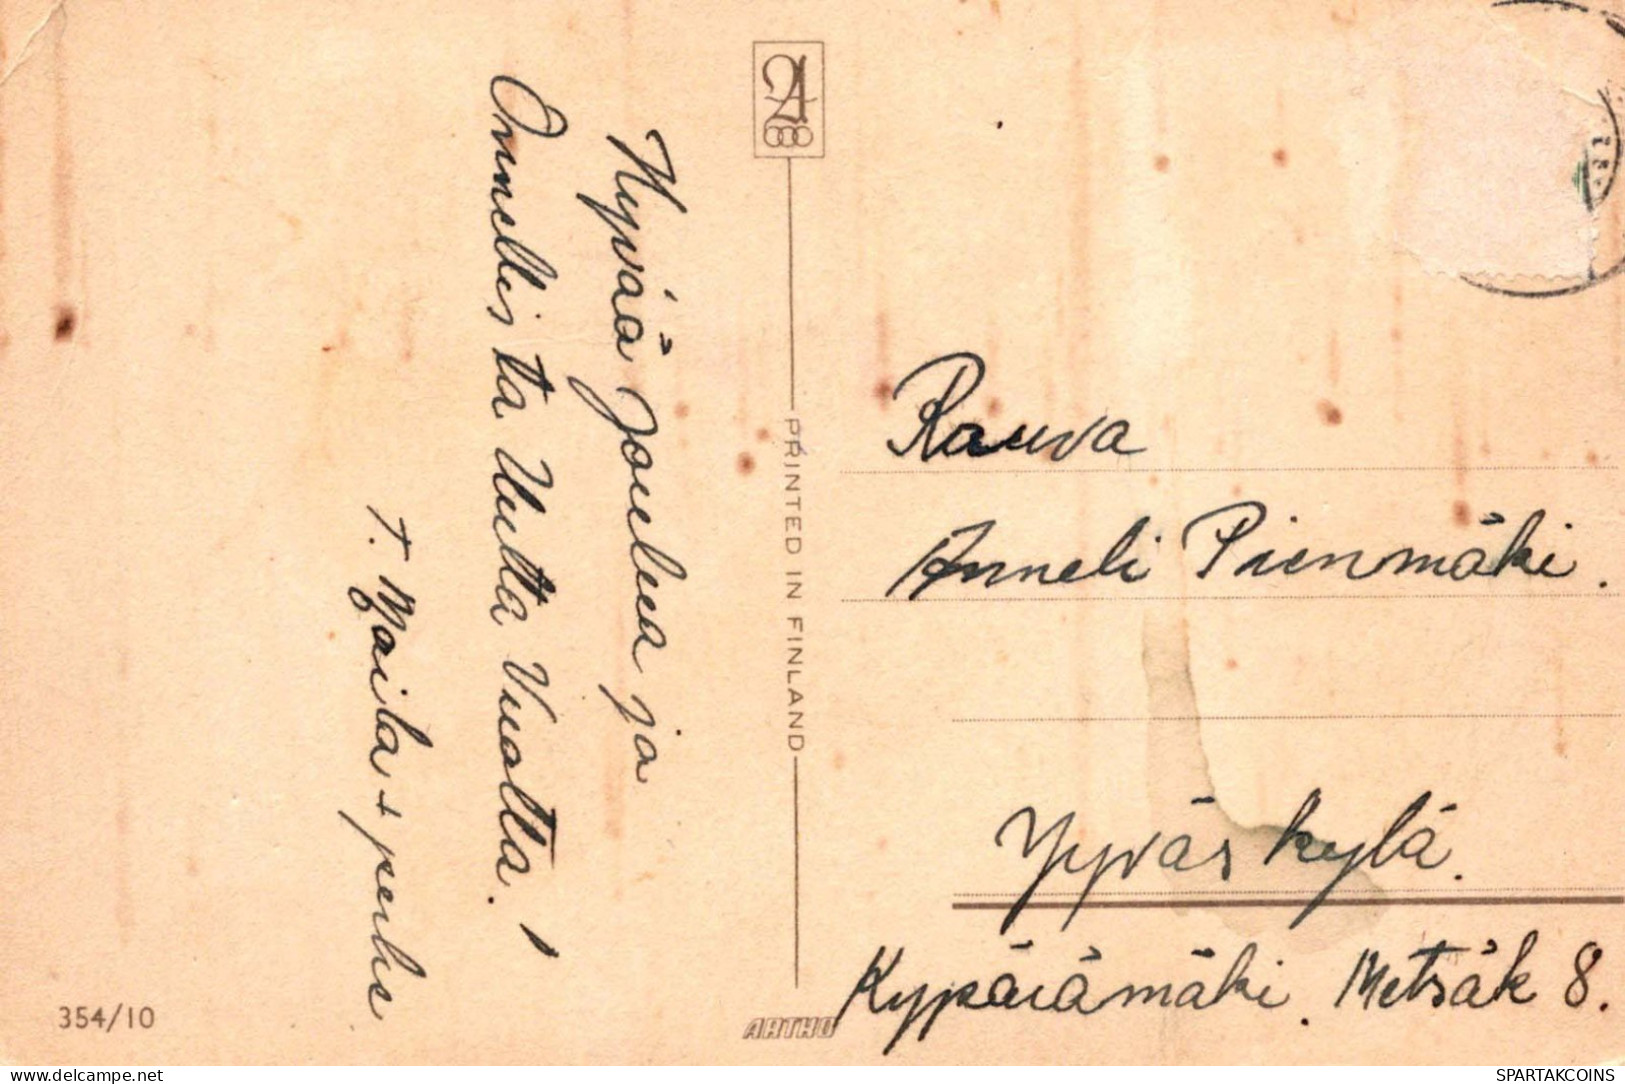 Hyvää Joulua ja
Onnellista Uutta Vuotta.
T. Maila + perhe
354/10
PRINTED IN FINLAND
ARTHO
Rauva
Anneli Pienmäki.
Jyväskylä.
Kypärämäki. Metsäk 8.
delcampe.net
SPARTAKCOINS